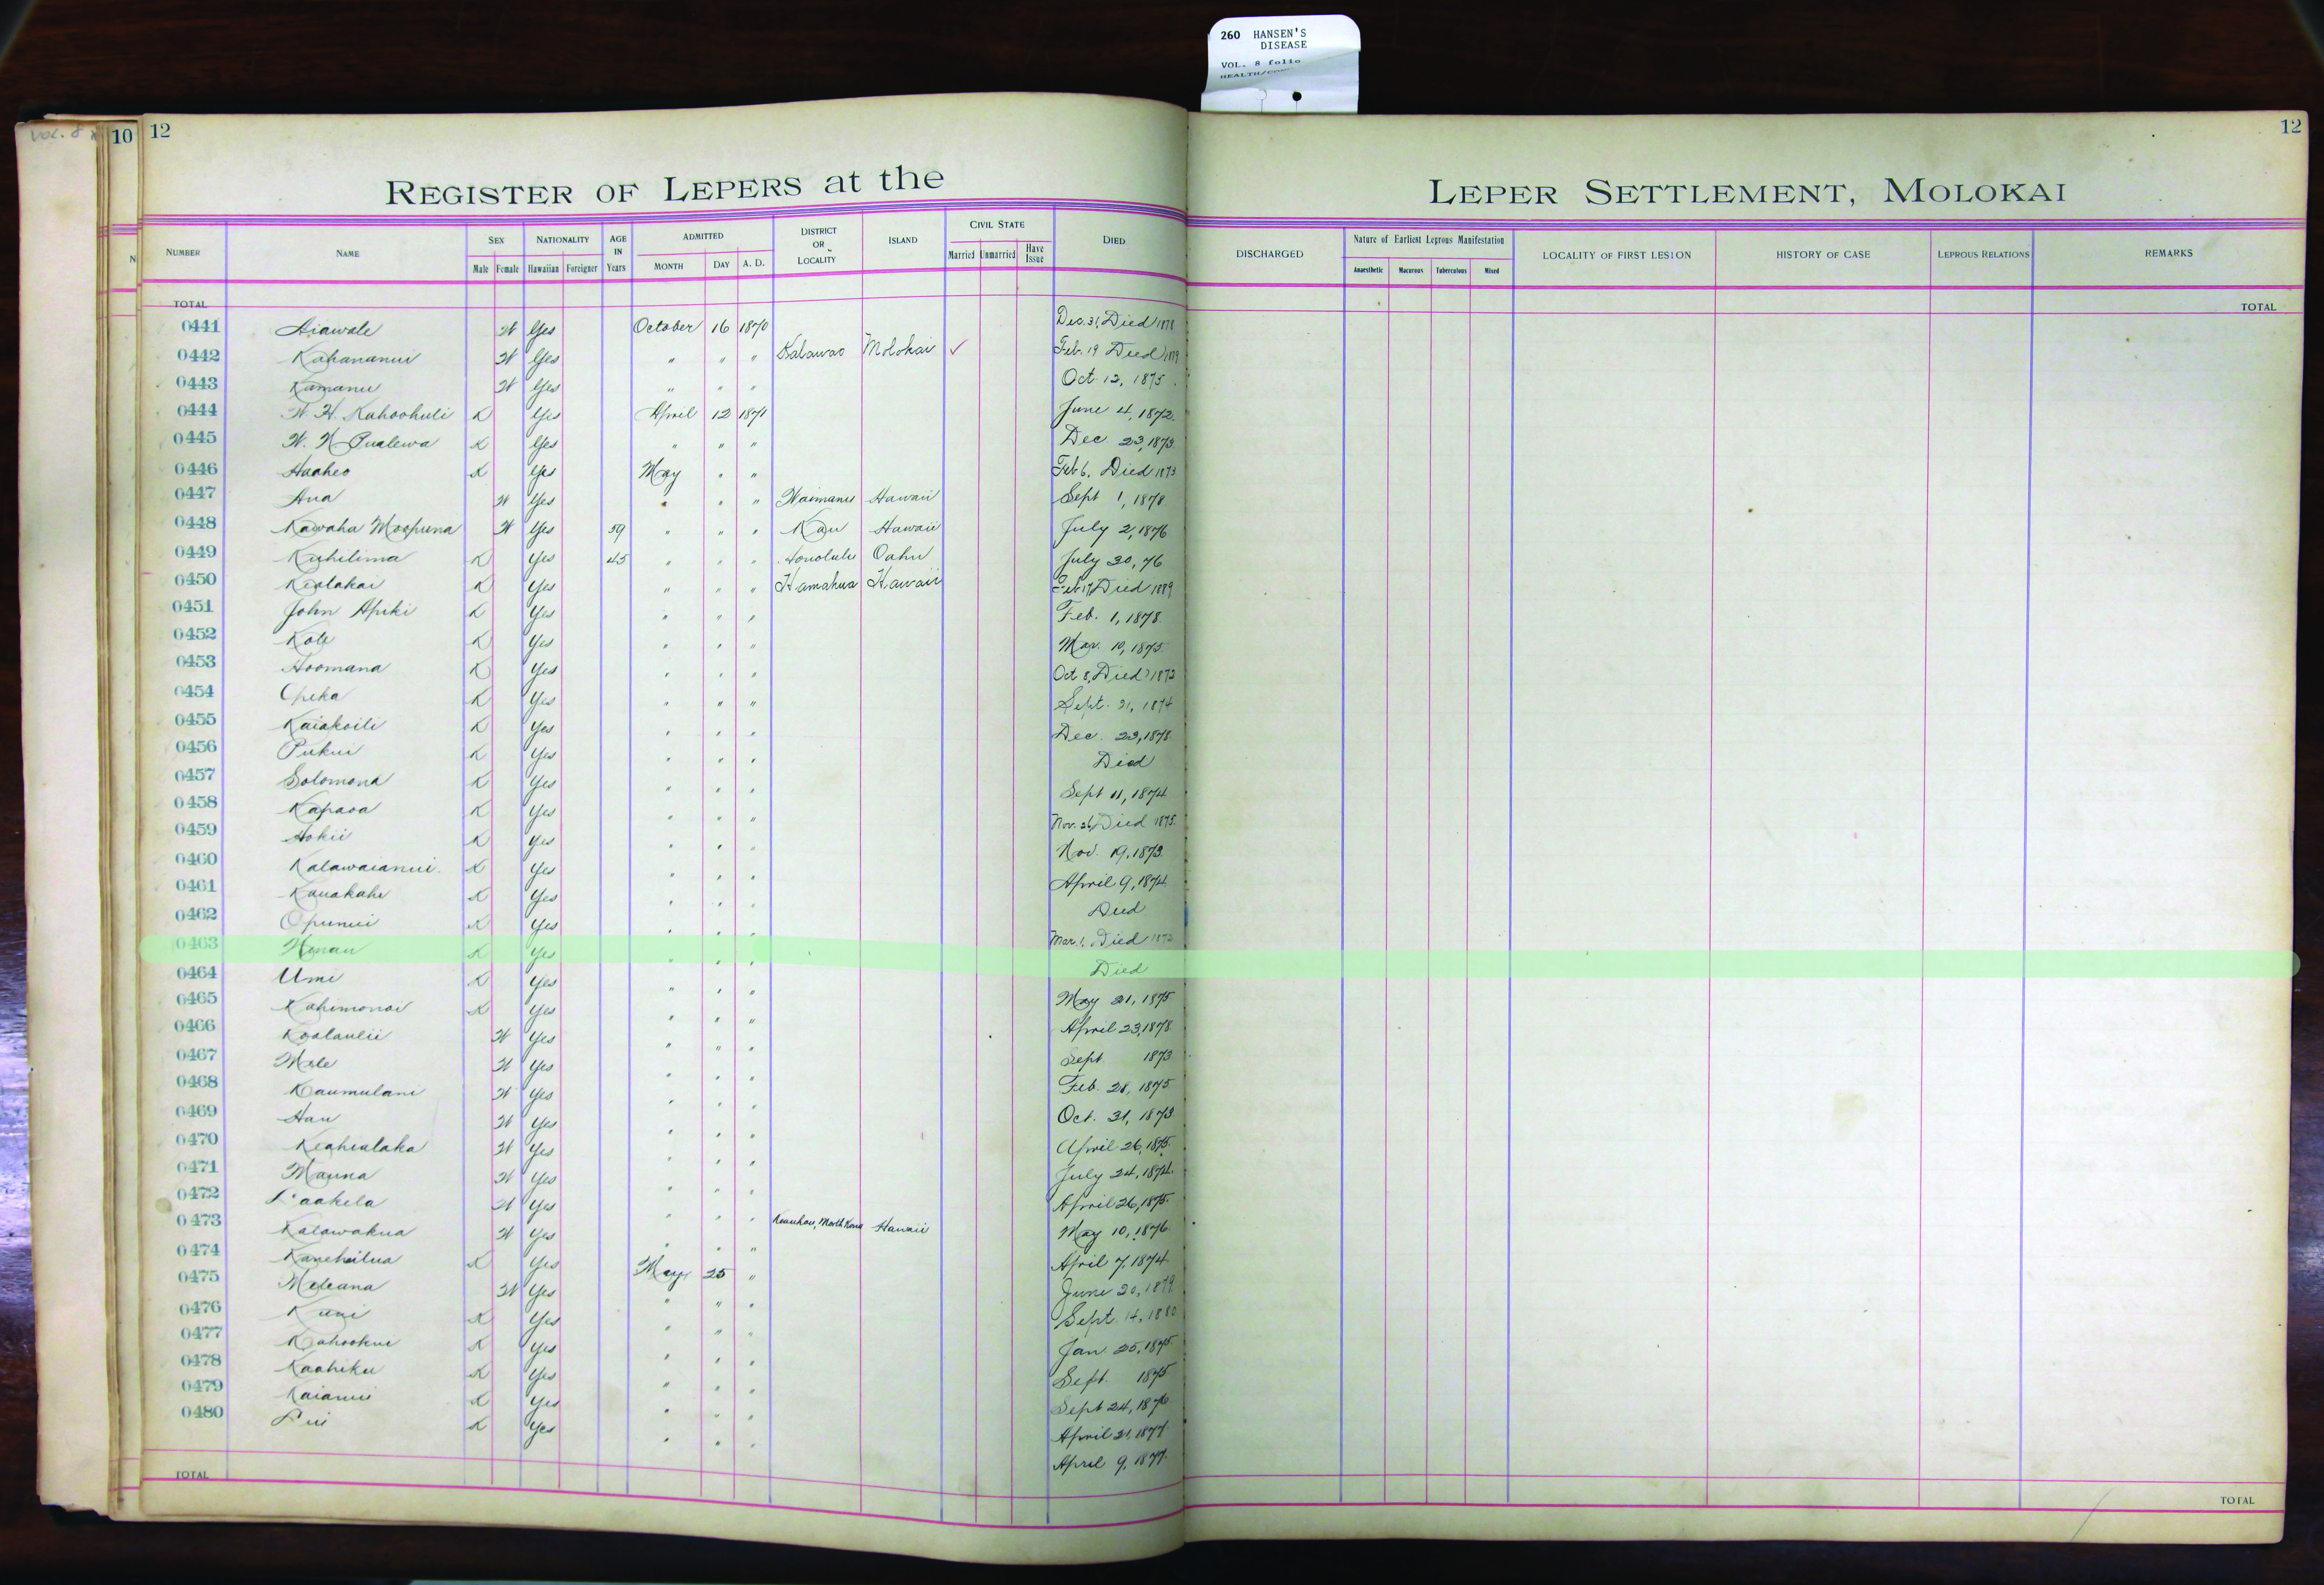 260 HANSEN'S
DISEASE
VOL. 8 folio
VOL. 8
10
12
12
REGISTER OF LEPERS at the LEPER SETTLEMENT, MOLOKAI
NUMBER NAME SEX NATIONALITY AGE IN Years ADMITTED DISTRICT OR LOCALITY ISLAND CIVIL STATE DIED DISCHARGED Nature of Earliest Leprous Manifestation LOCALITY OF FIRST LESION HISTORY OF CASE LEPROUS RELATIONS REMARKS
Male Female Hawaiian Foreigner MONTH DAY A. D. Married Unmarried Have Issue Anaesthetic Macurous Tuberculous Mixed
TOTAL TOTAL
0441 Aiawale W Yes October 16 1870 Dec. 31, Died 1878
0442 Kahananui W Yes " " " Kalawao Molokai ✓ Feb. 19 Died
0443 Kamanu W Yes " " " Oct. 12, 1875
0444 W. H. Kahoohuli K Yes April 12 1871 June 4, 1872
0445 W. N. Pualewa K Yes " " " Dec. 23, 1873
0446 Haaheo K Yes May " " Feb 6, Died 1873
0447 Ana W Yes " " " Waimanu Hawaii Sept 1, 1878
0448 Kawaha Moopuna W Yes 59 " " " Kau Hawaii July 2, 1876
0449 Kuhilima K Yes 45 " " " Honolulu Oahu July 30, 76
0450 Kealakai K Yes " " " Hamakua Hawaii Feb 17, Died 1889
0451 John Apiki K Yes " " " Feb. 1, 1878
0452 Kole K Yes " " " Mar. 10, 1875
0453 Hoomana K Yes " " " Oct 8, Died 1873
0454 Opeka K Yes " " " Sept. 21, 1874
0455 Kaiakoili K Yes " " " Dec. 23, 1878
0456 Pukui K Yes " " " Died
0457 Solomona K Yes " " " Sept 11, 1874
0458 Kapaoa K Yes " " " Nov. 26, Died 1875
0459 Hokii K Yes " " " Nov. 19, 1873
0460 Kalawaianui K Yes " " " April 9, 1874
0461 Kauakahi K Yes " " " Died
0462 Opunui K Yes " " " Mar. 1, Died 1872
0463 Honau K Yes " " " Died
0464 Umi K Yes " " " May 21, 1875
0465 Kahimonoi K Yes " " " April 23, 1878
0466 Koolaulii W Yes " " " Sept 1873
0467 Mele W Yes " " " Feb. 28, 1875
0468 Kaumulani W Yes " " " Oct. 31, 1873
0469 Hau W Yes " " " April 26, 1875
0470 Keahialaka W Yes " " " July 24, 1874
0471 Mauna W Yes " " " April 26, 1875
0472 Laakela W Yes " " " Keauhou, North Kona Hawaii May 10, 1876
0473 Kalawakua W Yes " " " April 7, 1874
0474 Kanehailua K Yes May 25 " June 20, 1879
0475 Meleana W Yes " " " Sept. 14, 1880
0476 Kuni K Yes " " " Jan 25, 1875
0477 Kahookui K Yes " " " Sept. 1875
0478 Kaahiku K Yes " " " Sept 24, 1876
0479 Kaianui K Yes " " " April 21, 1877
0480 Lui K Yes " " " April 9, 1877
TOTAL TOTAL